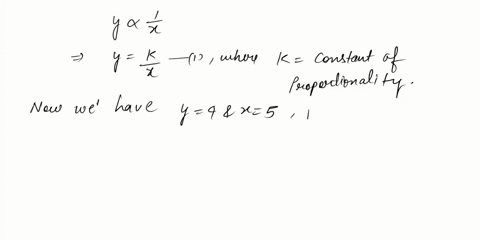 y ∝ 1/x
⇒ y = K/x —(1), where K = Constant of
Proportionality.
Now we' have y = 4 & x = 5 , 1